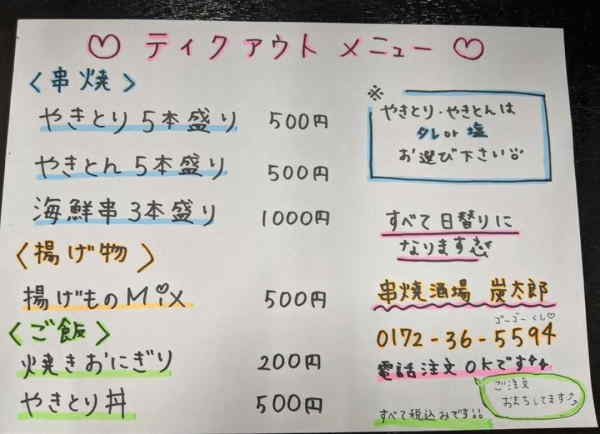 ♡ ティクアウト メニュー ♡
〈串焼〉
やきとり 5本盛り 500円
やきとん 5本盛り 500円
海鮮串 3本盛り 1000円
〈揚げ物〉
揚げものMix 500円
〈ご飯〉
焼きおにぎり 200円
やきとり丼 500円
※
やきとり・やきとんは
タレor塩
お選び下さい
すべて日替りに
なります
串焼酒場 炭太郎
ゴーゴーくし♡
0172-36-5594
電話注文OKです
ご注文
おまちしてます
すべて税込みです